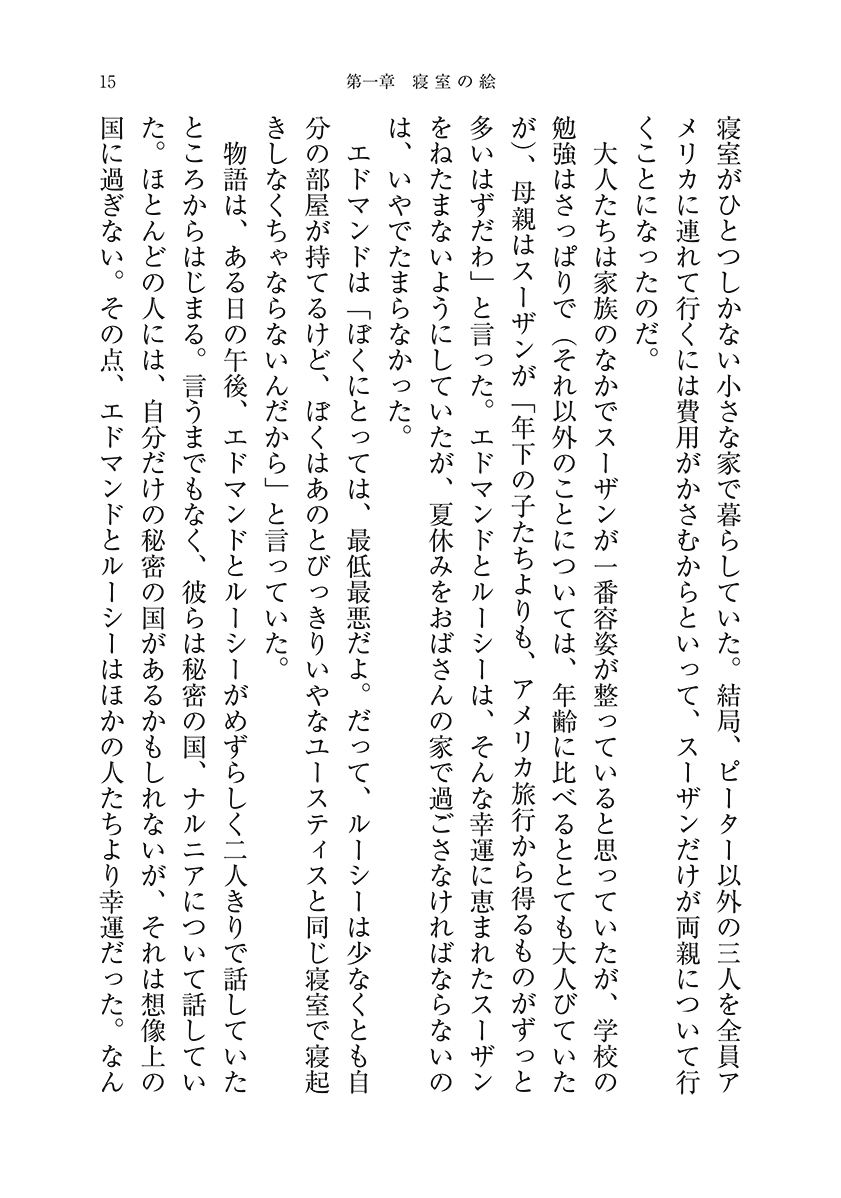 15
第一章　寝室の絵
寝室がひとつしかない小さな家で暮らしていた。結局、ピーター以外の三人を全員ア
メリカに連れて行くには費用がかさむからといって、スーザンだけが両親について行
くことになったのだ。
　大人たちは家族のなかでスーザンが一番容姿が整っていると思っていたが、学校の
勉強はさっぱりで（それ以外のことについては、年齢に比べるととても大人びていた
が）、母親はスーザンが「年下の子たちよりも、アメリカ旅行から得るものがずっと
多いはずだわ」と言った。エドマンドとルーシーは、そんな幸運に恵まれたスーザン
をねたまないようにしていたが、夏休みをおばさんの家で過ごさなければならないの
は、いやでたまらなかった。
　エドマンドは「ぼくにとっては、最低最悪だよ。だって、ルーシーは少なくとも自
分の部屋が持てるけど、ぼくはあのとびっきりいやなユースティスと同じ寝室で寝起
きしなくちゃならないんだから」と言っていた。
　物語は、ある日の午後、エドマンドとルーシーがめずらしく二人きりで話していた
ところからはじまる。言うまでもなく、彼らは秘密の国、ナルニアについて話してい
た。ほとんどの人には、自分だけの秘密の国があるかもしれないが、それは想像上の
国に過ぎない。その点、エドマンドとルーシーはほかの人たちより幸運だった。なん